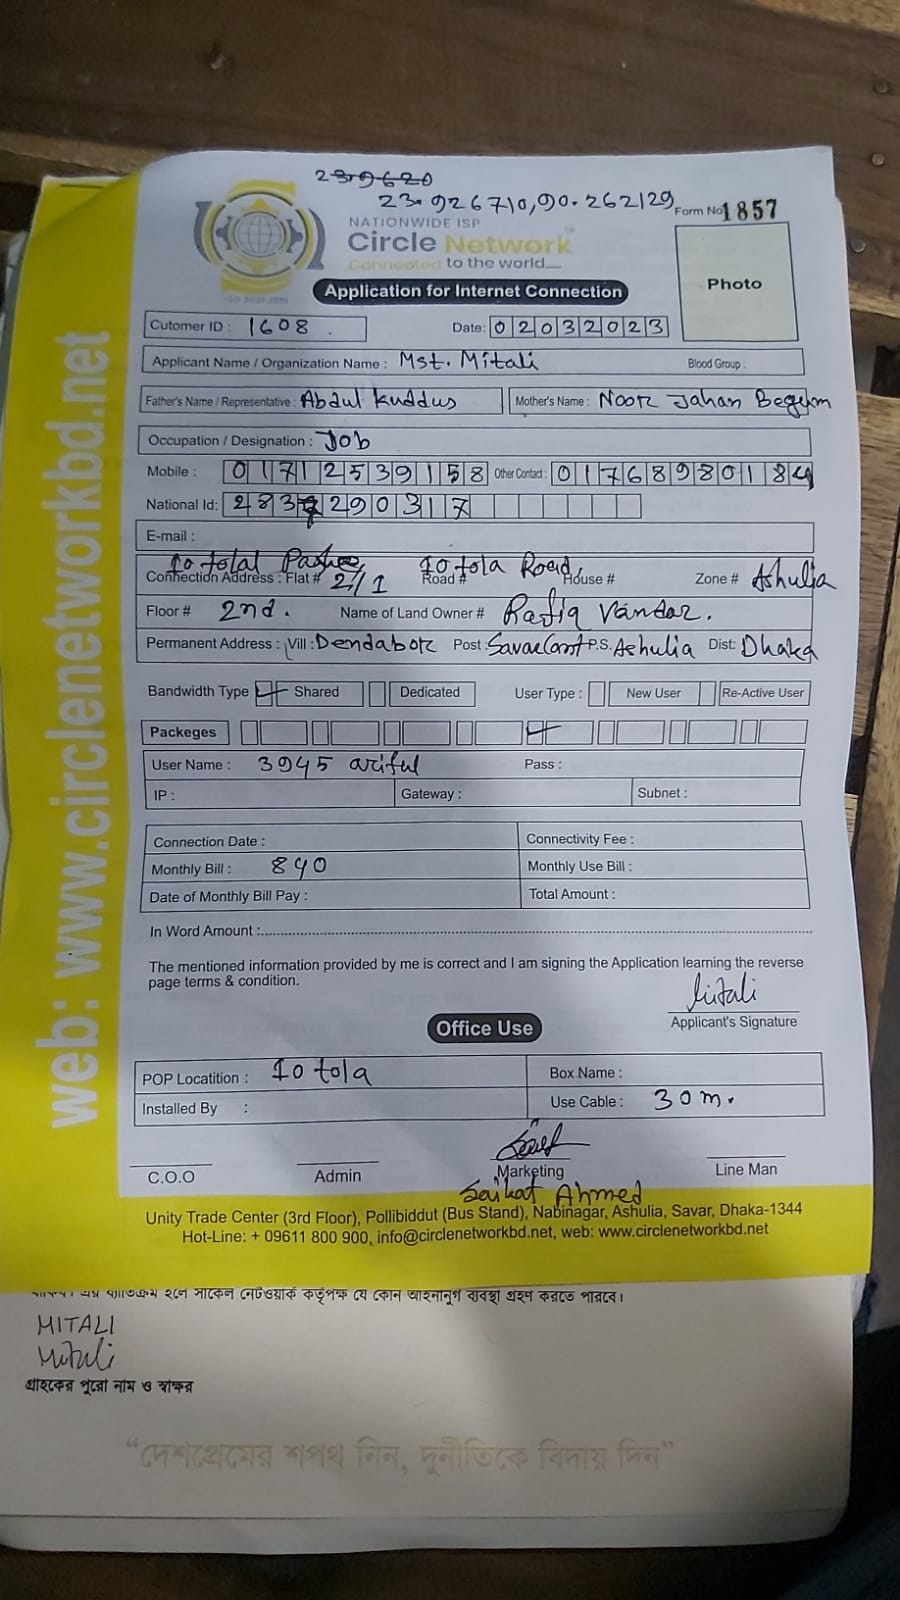 23.9620
23.926710,90.262129
Form No 1857
NATIONWIDE ISP
Circle Network
Connected to the world.....
Photo
Application for Internet Connection
Cutomer ID : 1608
Date: 02032023
Applicant Name / Organization Name : Mst. Mitali Blood Group :
Father's Name / Representative : Abdul Kuddus Mother's Name : Noor Jahan Begum
Occupation / Designation : Job
Mobile : 01712539158 Other Contact : 01768980184
National Id: 2832290317
E-mail :
10 tolal
Connection Address : Flat # 2/1 Road # 10 tola Road, House # Zone # Ashulia
Floor # 2nd. Name of Land Owner # Rafiq Vandar.
Permanent Address : Vill : Dendabor Post : Savar Cant P.S. Ashulia Dist: Dhaka
Bandwidth Type Shared Dedicated User Type : New User Re-Active User
Packeges
User Name : 3945 ariful Pass :
IP : Gateway : Subnet :
Connection Date : Connectivity Fee :
Monthly Bill : 840 Monthly Use Bill :
Date of Monthly Bill Pay : Total Amount :
In Word Amount :
The mentioned information provided by me is correct and I am signing the Application learning the reverse
page terms & condition.
Mitali
Applicant's Signature
Office Use
POP Locatition : 10 tola Box Name :
Installed By : Use Cable : 30m.
C.O.O Admin Marketing Line Man
Saikat Ahmed
Unity Trade Center (3rd Floor), Pollibiddut (Bus Stand), Nabinagar, Ashulia, Savar, Dhaka-1344
Hot-Line: + 09611 800 900, info@circlenetworkbd.net, web: www.circlenetworkbd.net
web: www.circlenetworkbd.net
এর ব্যতিক্রম হলে সার্কেল নেটওয়ার্ক কর্তৃপক্ষ যে কোন আইনানুগ ব্যবস্থা গ্রহণ করতে পারবে।
MITALI
Mitali
গ্রাহকের পুরো নাম ও স্বাক্ষর
“দেশপ্রেমের শপথ নিন, দুর্নীতিকে বিদায় দিন”